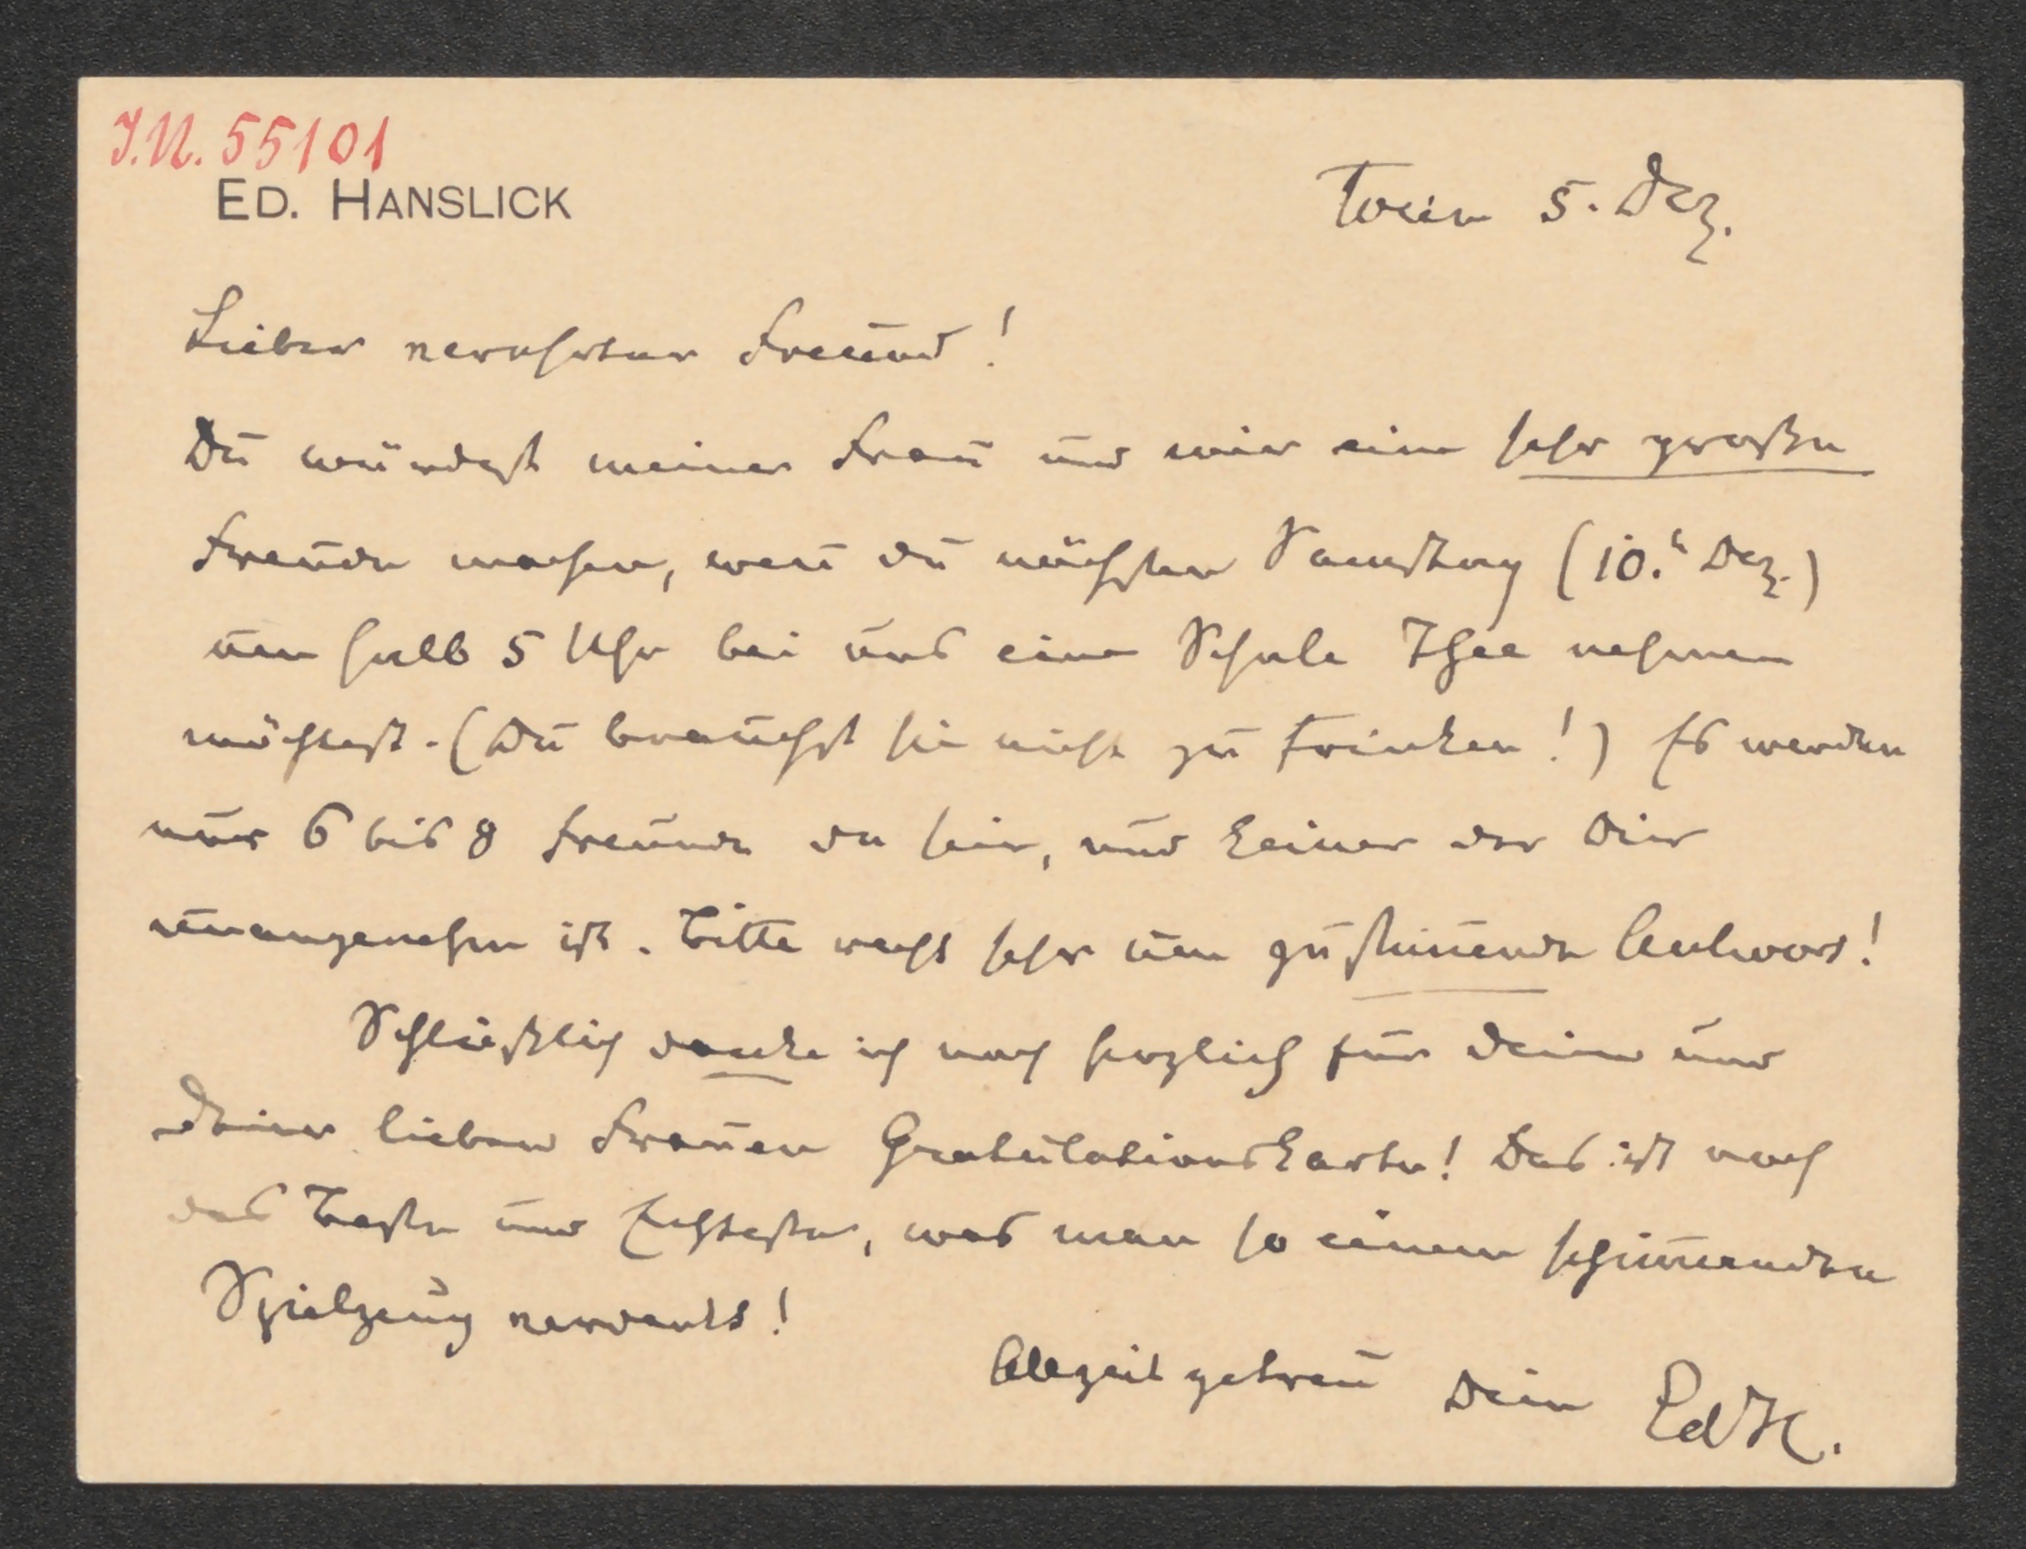 J.N. 55101
ED. HANSLICK
Wien 5. Dez.
Lieber verehrter Freund!
Du würdest meiner Frau und mir eine sehr große
Freude machen, wen̄ du nächsten Samstag (10.t Dez.)
um halb 5 Uhr bei uns eine Schale Thee nehmen
möchtest. (Du brauchst sie nicht zu trinken!) Es werden
nur 6 bis 8 Freunde da sein, und keiner der Dir
unangenehm ist. Bitte recht sehr um zustim̄ende Antwort!
Schließlich danke ich noch herzlich für Deine und
Deiner lieben Frauen Gratulationskarte! Das ist noch
das Beste und Echteste, was man so einem schim̄ernden
Spielzeug verdankt!
Allzeit getreu Dein EdH.